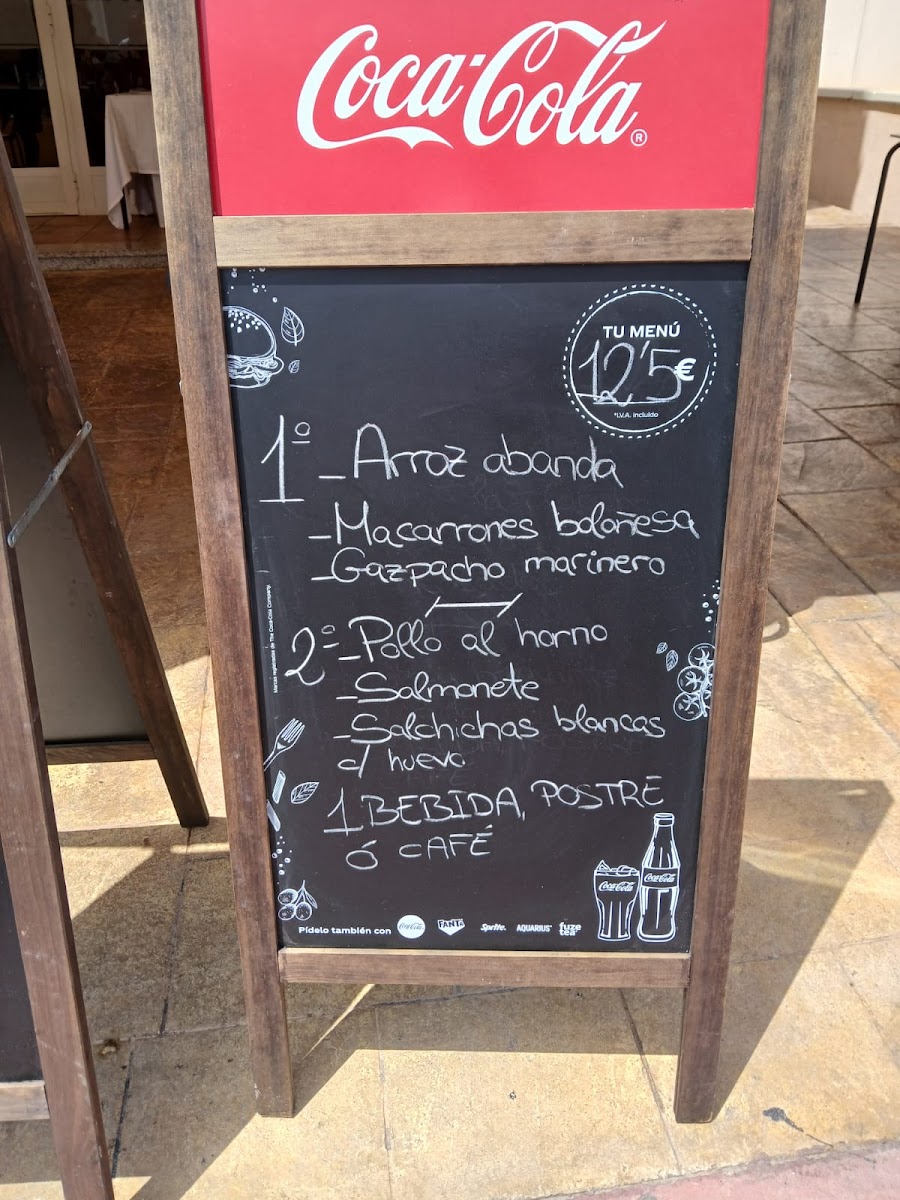 Coca-Cola®
TU MENÚ
12'5€
*I.V.A. incluido
1º - Arroz abanda
- Macarrones bolañesa
- Gazpacho marinero
2º - Pollo al horno
- Salmonete
- Salchichas blancas
c/ huevo
1 BEBIDA, POSTRE
Ó CAFÉ
Marcas registradas de The Coca-Cola Company.
Coca-Cola
Coca-Cola
Pídelo también con Coca-Cola FANTA Sprite. AQUARIUS fuze tea